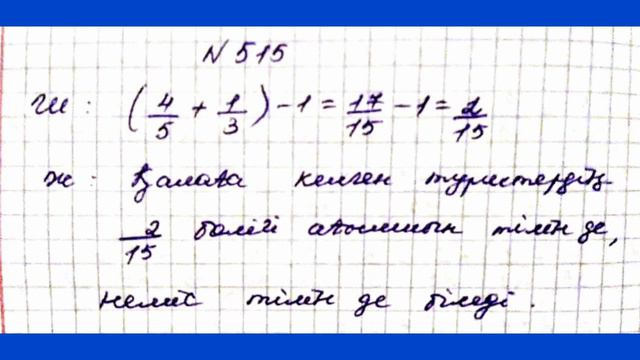 N 515
Ш: (4/5 + 1/3) - 1 = 17/15 - 1 = 2/15
Ж: Қалаға келген туристердің
2/15 бөлігі ағылшын тілін де,
неміс тілін де біледі.